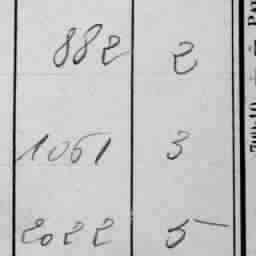 882 2
1051 3
2022 5